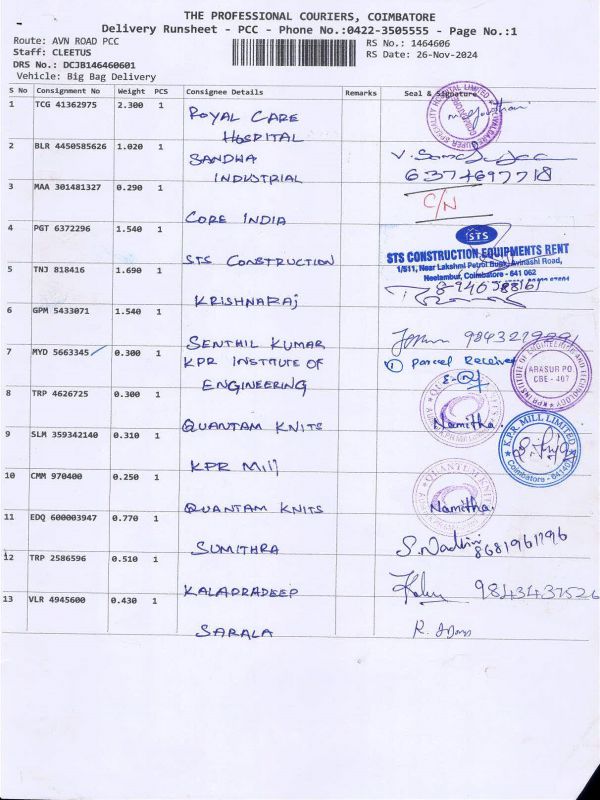 THE PROFESSIONAL COURIERS, COIMBATORE
Delivery Runsheet - PCC - Phone No.:0422-3505555 - Page No.:1
Route: AVN ROAD PCC
RS No.: 1464606
Staff: CLEETUS
RS Date: 26-Nov-2024
DRS No.: DCJB146460601
Vehicle: Big Bag Delivery
S No Consignment No Weight PCS Consignee Details Remarks Seal & Signature
1 TCG 41362975 2.300 1 ROYAL CARE
HOSPITAL
2 BLR 4450585626 1.020 1 SANDHA
INDUSTRIAL
6374697718
3 MAA 301481327 0.290 1 CORE INDIA C/N
4 PGT 6372296 1.540 1 STS CONSTRUCTION
STS
STS CONSTRUCTION EQUIPMENTS RENT
1/511, Near Lakshmi Petrol Bunk, Avinashi Road,
Neelambur, Coimbatore - 641 062
5 TNJ 818416 1.690 1 KRISHNARAJ
6 GPM 5433071 1.540 1 SENTHIL KUMAR
7 MYD 5663345 0.300 1 KPR INSTITUTE OF
ENGINEERING
1 Parcel Received
KPR INSTITUTE OF ENGINEERING AND TECHNOLOGY
ARASUR PO
CBE - 407
8 TRP 4626725 0.300 1 QUANTAM KNITS Namitha.
9 SLM 359342140 0.310 1 KPR Mill
K.P.R. MILL LIMITED
Coimbatore - 641407
10 CMM 970400 0.250 1 QUANTAM KNITS Namitha.
QUANTUM KNITS
11 EDQ 600003947 0.770 1 SUMITHRA
8681961196
12 TRP 2586596 0.510 1 KALAPRADEEP
9843437526
13 VLR 4945600 0.430 1 SARALA